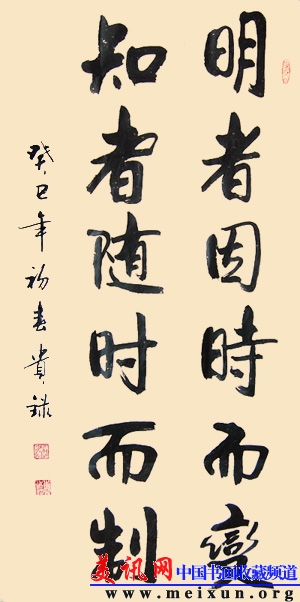 明者因時而變
知者随时而制
癸巳年初春贵録
美讯网
中国书画收藏频道
www.meixun.org